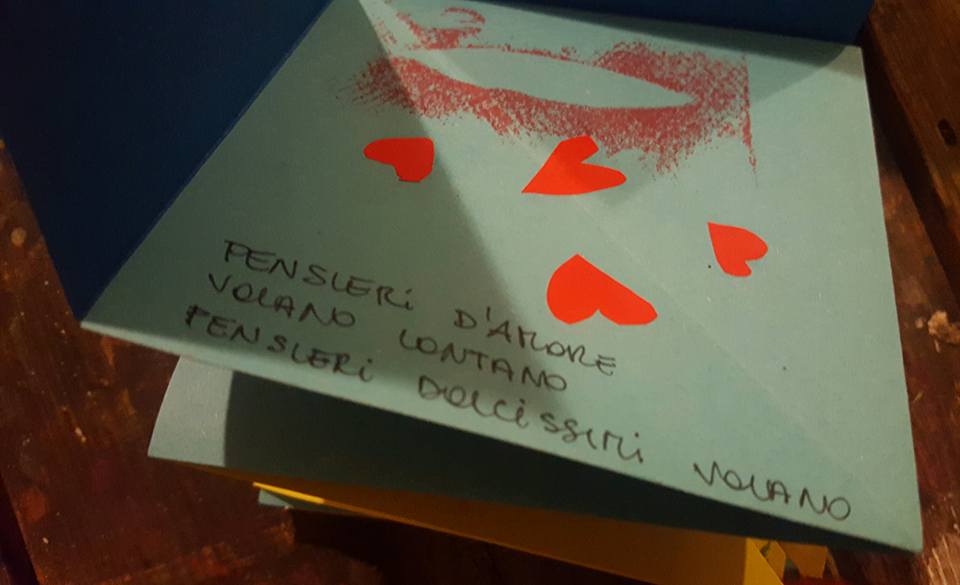 PENSIERi D'AMORE
VOLANO LONTANO
PENSIERi DOLCiSSiMi VOLANO